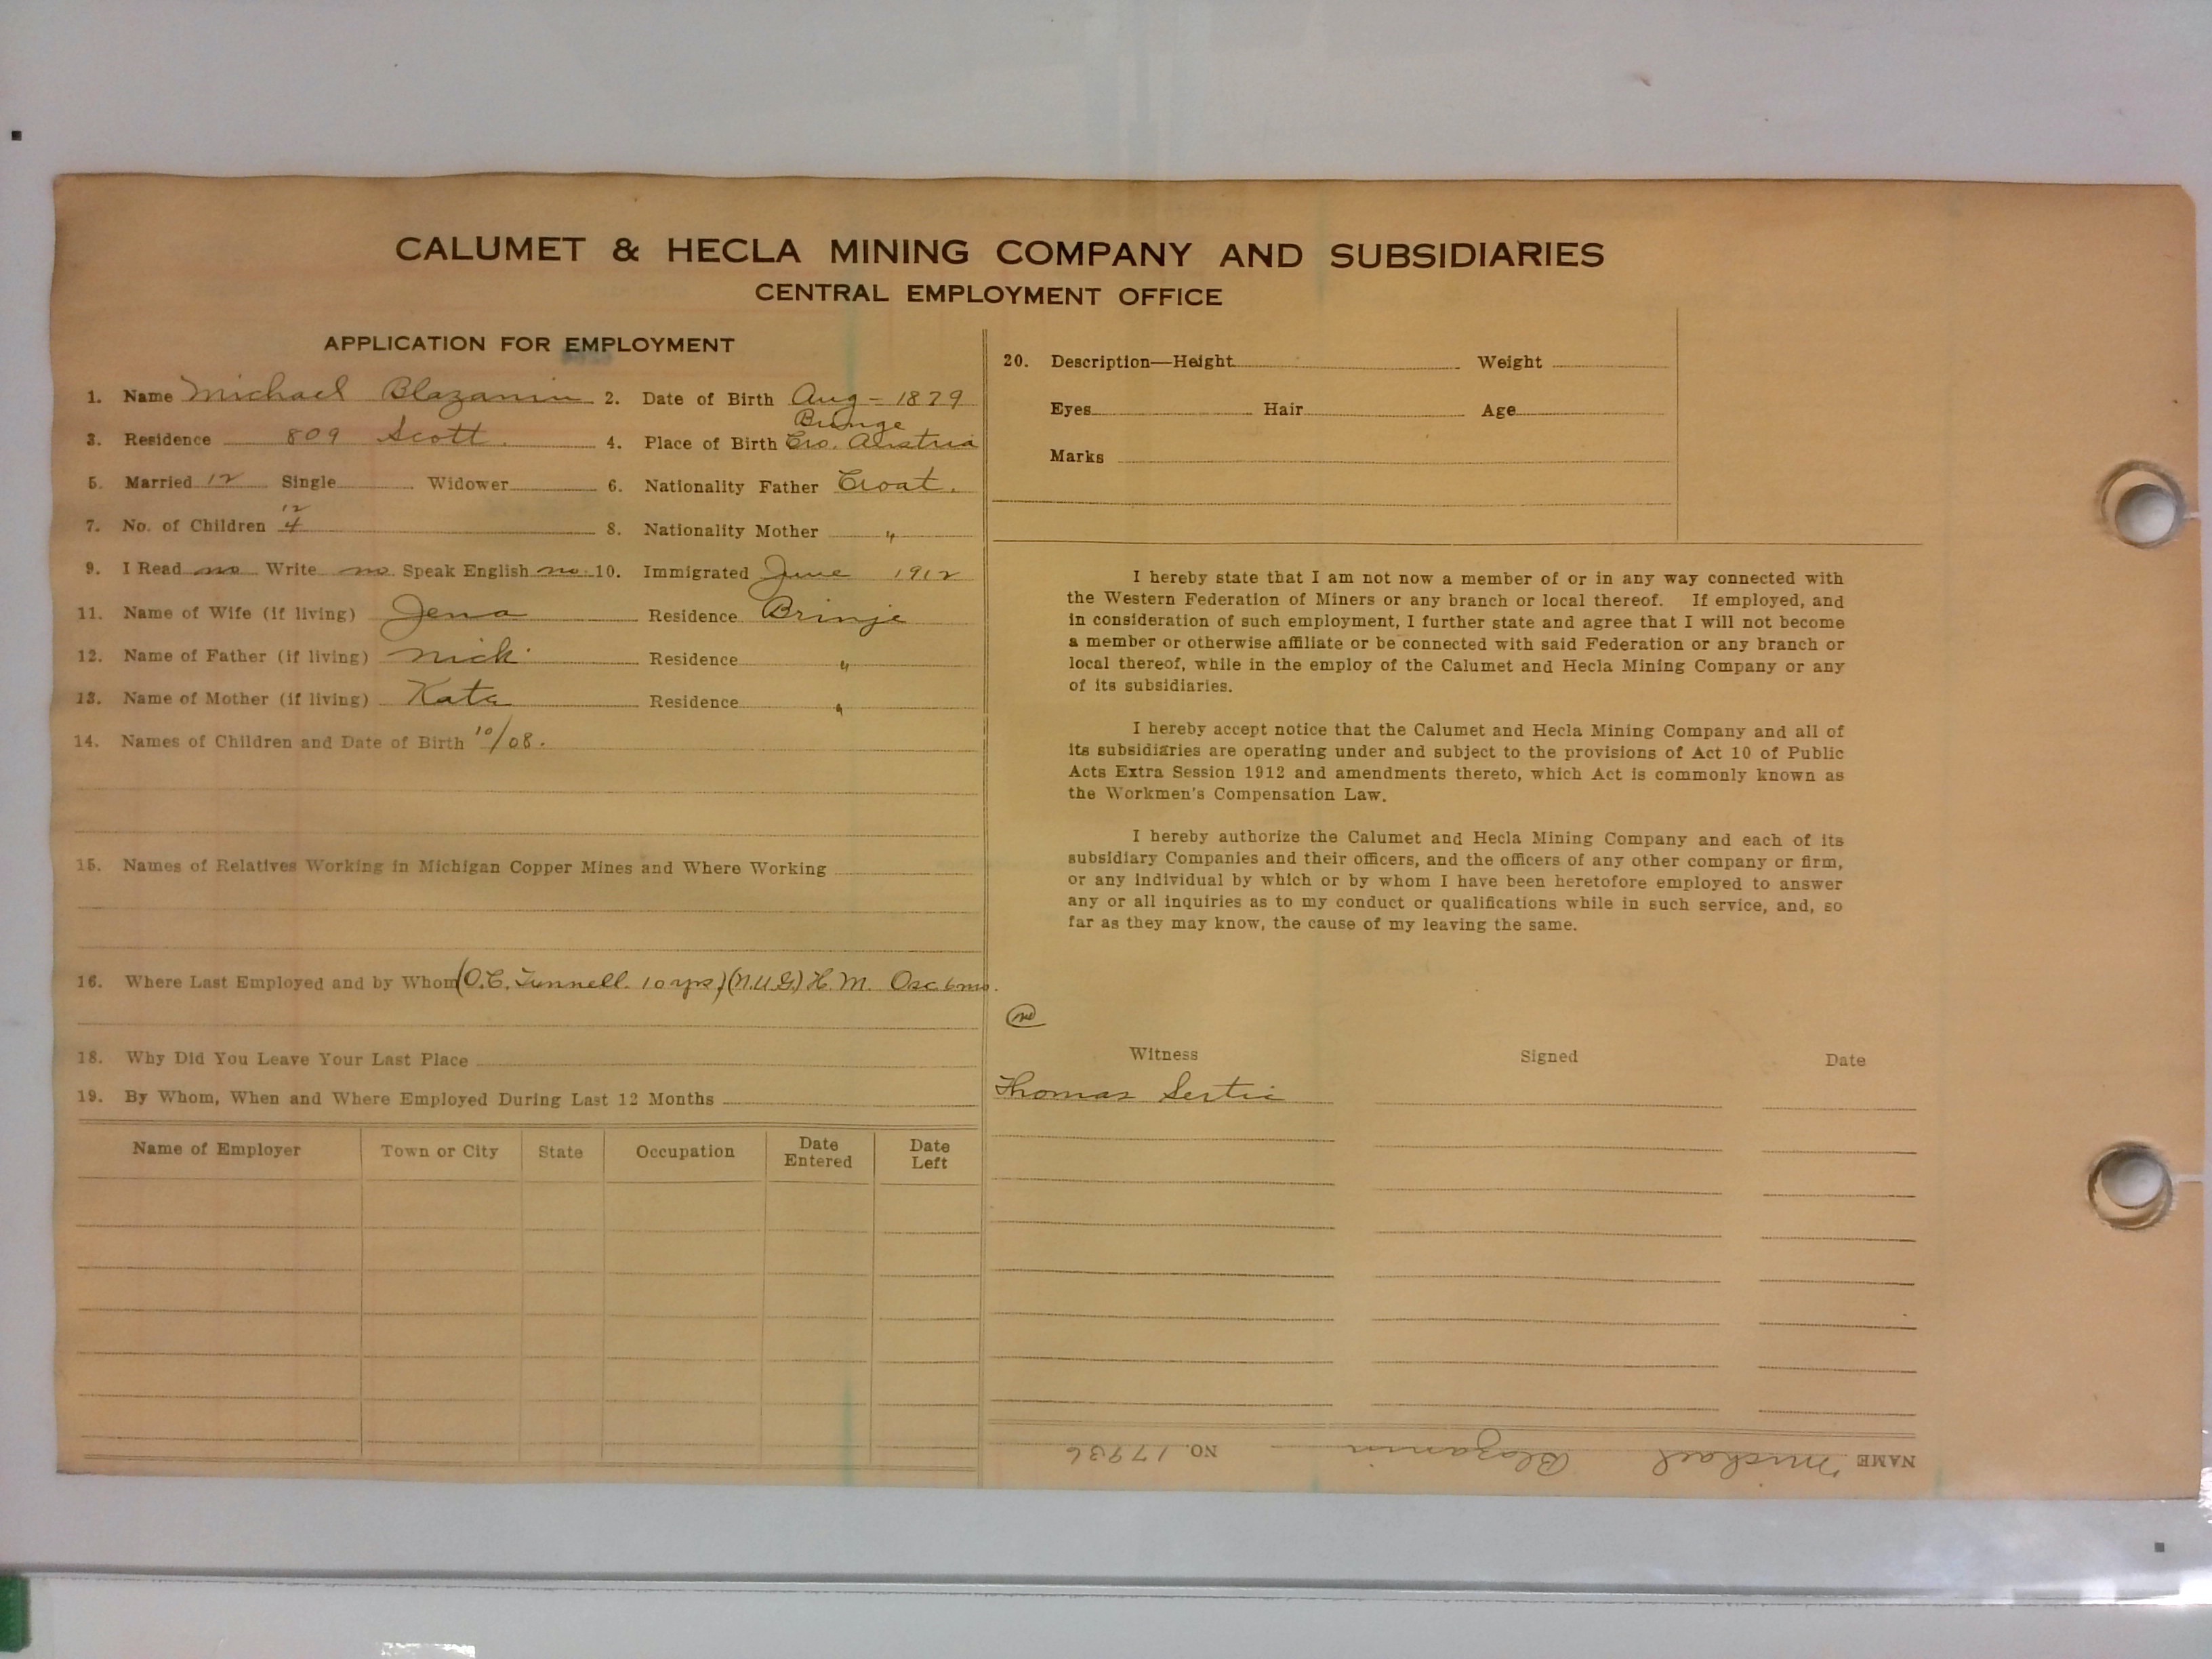 CALUMET & HECLA MINING COMPANY AND SUBSIDIARIES
CENTRAL EMPLOYMENT OFFICE
APPLICATION FOR EMPLOYMENT
1. Name Michael Blazanin 2. Date of Birth Aug - 1879
3. Residence 809 Scott. 4. Place of Birth Bringe Cro. Austria
5. Married 12 Single Widower 6. Nationality Father Croat.
7. No. of Children 12 4 8. Nationality Mother "
9. I Read no Write no Speak English no 10. Immigrated June 1912
11. Name of Wife (if living) Jena Residence Brinje
12. Name of Father (if living) Nick Residence "
13. Name of Mother (if living) Kata Residence "
14. Names of Children and Date of Birth 10/08.
15. Names of Relatives Working in Michigan Copper Mines and Where Working
16. Where Last Employed and by Whom (O.C. Tunnell. 10 yrs) (N.U.G.) H.M. Osc 6 mo.
18. Why Did You Leave Your Last Place
19. By Whom, When and Where Employed During Last 12 Months
Name of Employer Town or City State Occupation Date Entered Date Left
20. Description—Height Weight
Eyes Hair Age
Marks
I hereby state that I am not now a member of or in any way connected with
the Western Federation of Miners or any branch or local thereof. If employed, and
in consideration of such employment, I further state and agree that I will not become
a member or otherwise affiliate or be connected with said Federation or any branch or
local thereof, while in the employ of the Calumet and Hecla Mining Company or any
of its subsidiaries.
I hereby accept notice that the Calumet and Hecla Mining Company and all of
its subsidiaries are operating under and subject to the provisions of Act 10 of Public
Acts Extra Session 1912 and amendments thereto, which Act is commonly known as
the Workmen's Compensation Law.
I hereby authorize the Calumet and Hecla Mining Company and each of its
subsidiary Companies and their officers, and the officers of any other company or firm,
or any individual by which or by whom I have been heretofore employed to answer
any or all inquiries as to my conduct or qualifications while in such service, and, so
far as they may know, the cause of my leaving the same.
Witness Signed Date
Thomas Sertic
NAME Michael Blazanin NO. 17936